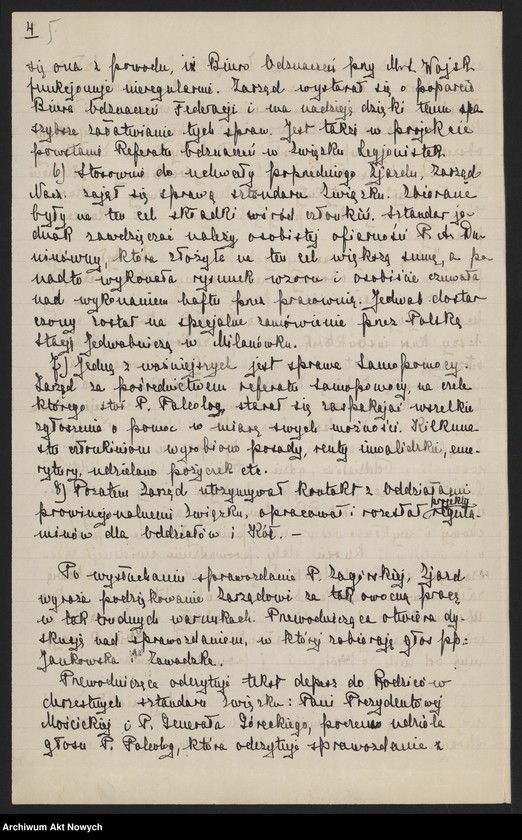 4 5
się ona z powodu, iż Biuro Odznaczeń przy M.S. Wojsk
funkcjonuje nieregularni. Zarząd wystarał się o poparcie
Biura Odznaczeń Federacji i ma nadzieję dzięki temu spo
szybsze załatwianie tych spraw. Jest także w projekcie
powstanie Referatu Odznaczeń w Związku Legjonistek.
6) Stosownie do uchwały poprzedniego Zjazdu, Zarząd
Nacz. zajął się sprawą sztandaru Związku. Zbierane
były na ten cel składki wśród członkiń. Sztandar je-
dnak zawdzięczać należy osobistej ofiarności P. A. Du-
ninówny, która złożyła na ten cel większą sumę, a po
nadto wykonała rysunek wzoru i osobiście czuwała
nad wykonaniem haftu przez pracownię. Jedwab dostar
czony został na specjalne zamówienie przez Polską
Stację Jedwabniczą w Milanówku.
7) Jedną z ważniejszych jest sprawa Samopomocy.
Zarząd za pośrednictwem referatu samopomocy, na czele
którego stoi P. Paleolog, starał się zaspakajać wszelkie
zgłoszenia o pomoc w miarę swych możności. Kilkuna-
stu członkiniom wyrobiono posady, renty inwalidzkie, eme-
rytury, udzielano pożyczek etc.
8) Pozatem Zarząd utrzymywał kontakt z Oddziałami
prowincjonalnemi Związku, opracował i rozesłał projekty regula-
minów dla Oddziałów i Kół. –
Po wysłuchaniu sprawozdania P. Zagórskiej, Zjazd
wyraża podziękowanie Zarządowi za tak owocną pracę
w tak trudnych warunkach. Przewodnicząca otwiera dy-
skusję nad sprawozdaniem, w której zabierają głos pp.:
Jankowska i Zawadzka.
Przewodnicząca odczytuje tekst depesz do Rodziców
chrzestnych sztandaru Związku: Pani Prezydentowej
Mościckiej i P. Generała Góreckiego, poczem udziela
głosu P. Paleolog, która odczytuje sprawozdanie z
Archiwum Akt Nowych